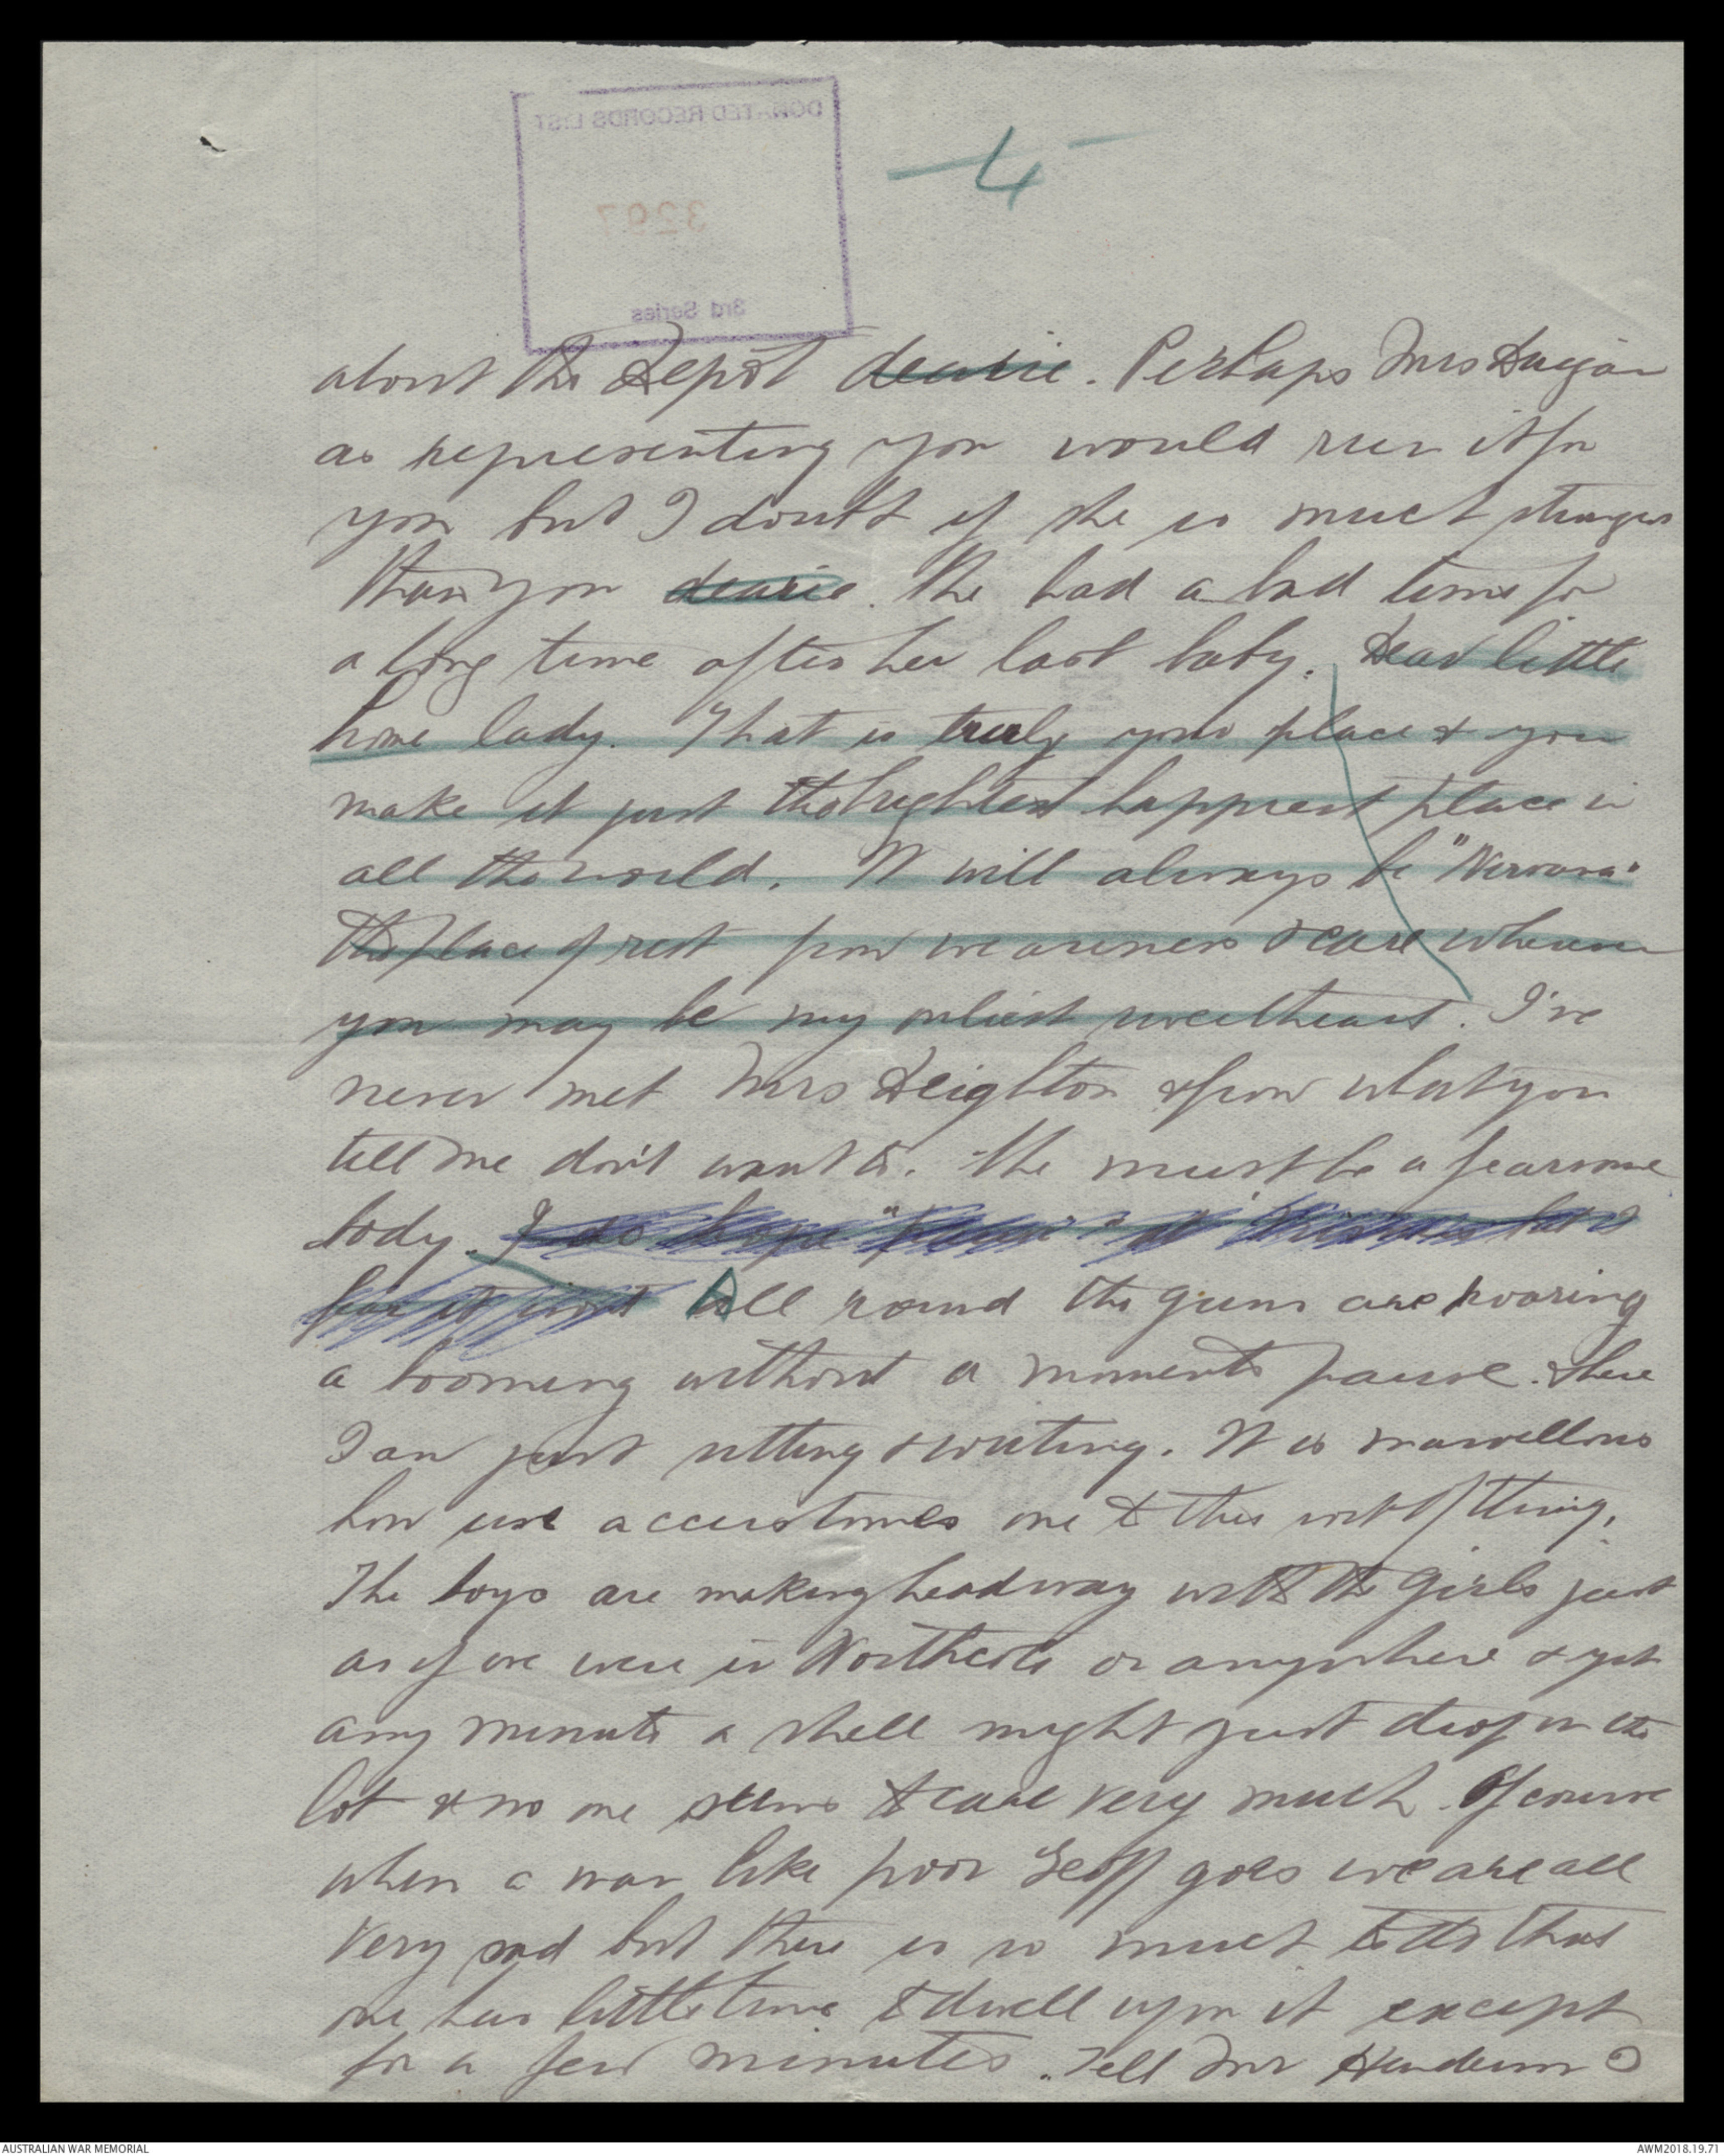 DONATED RECORDS LIST
3297
3rd Series
-4-
about the Depôt dearie. Perhaps Mrs Duigan
as representing you would run it for
you but I doubt if she is much stronger
than you dearie. She had a bad time for
a long time after her last baby. Dear little
home lady. That is truly your place & you
make it just the brightest happiest place in
all the world. It will always be "Nirvana"
the place of rest from weariness & care wherever
you may be my onliest sweetheart. I've
never met Mrs Deighton & from what you
tell me don't want to. She must be a fearsome
body. I do hope "
fear it isn't All round the guns are roaring
a booming without a moments pause & here
I am just sitting & writing. It is marvellous
how use accustomes one to this sort of thing.
The boys are making headway with the girls just
as if we were in Northcote or anywhere & yet
any minute a shell might just drop in the
lot & no one seems to care very much. Of course
when a man like poor Geoff goes we are all
very sad but there is so much to do that
one has little time to dwell upon it except
for a few minutes. Tell Mr Henderson I
AUSTRALIAN WAR MEMORIAL
AWM2018.19.71